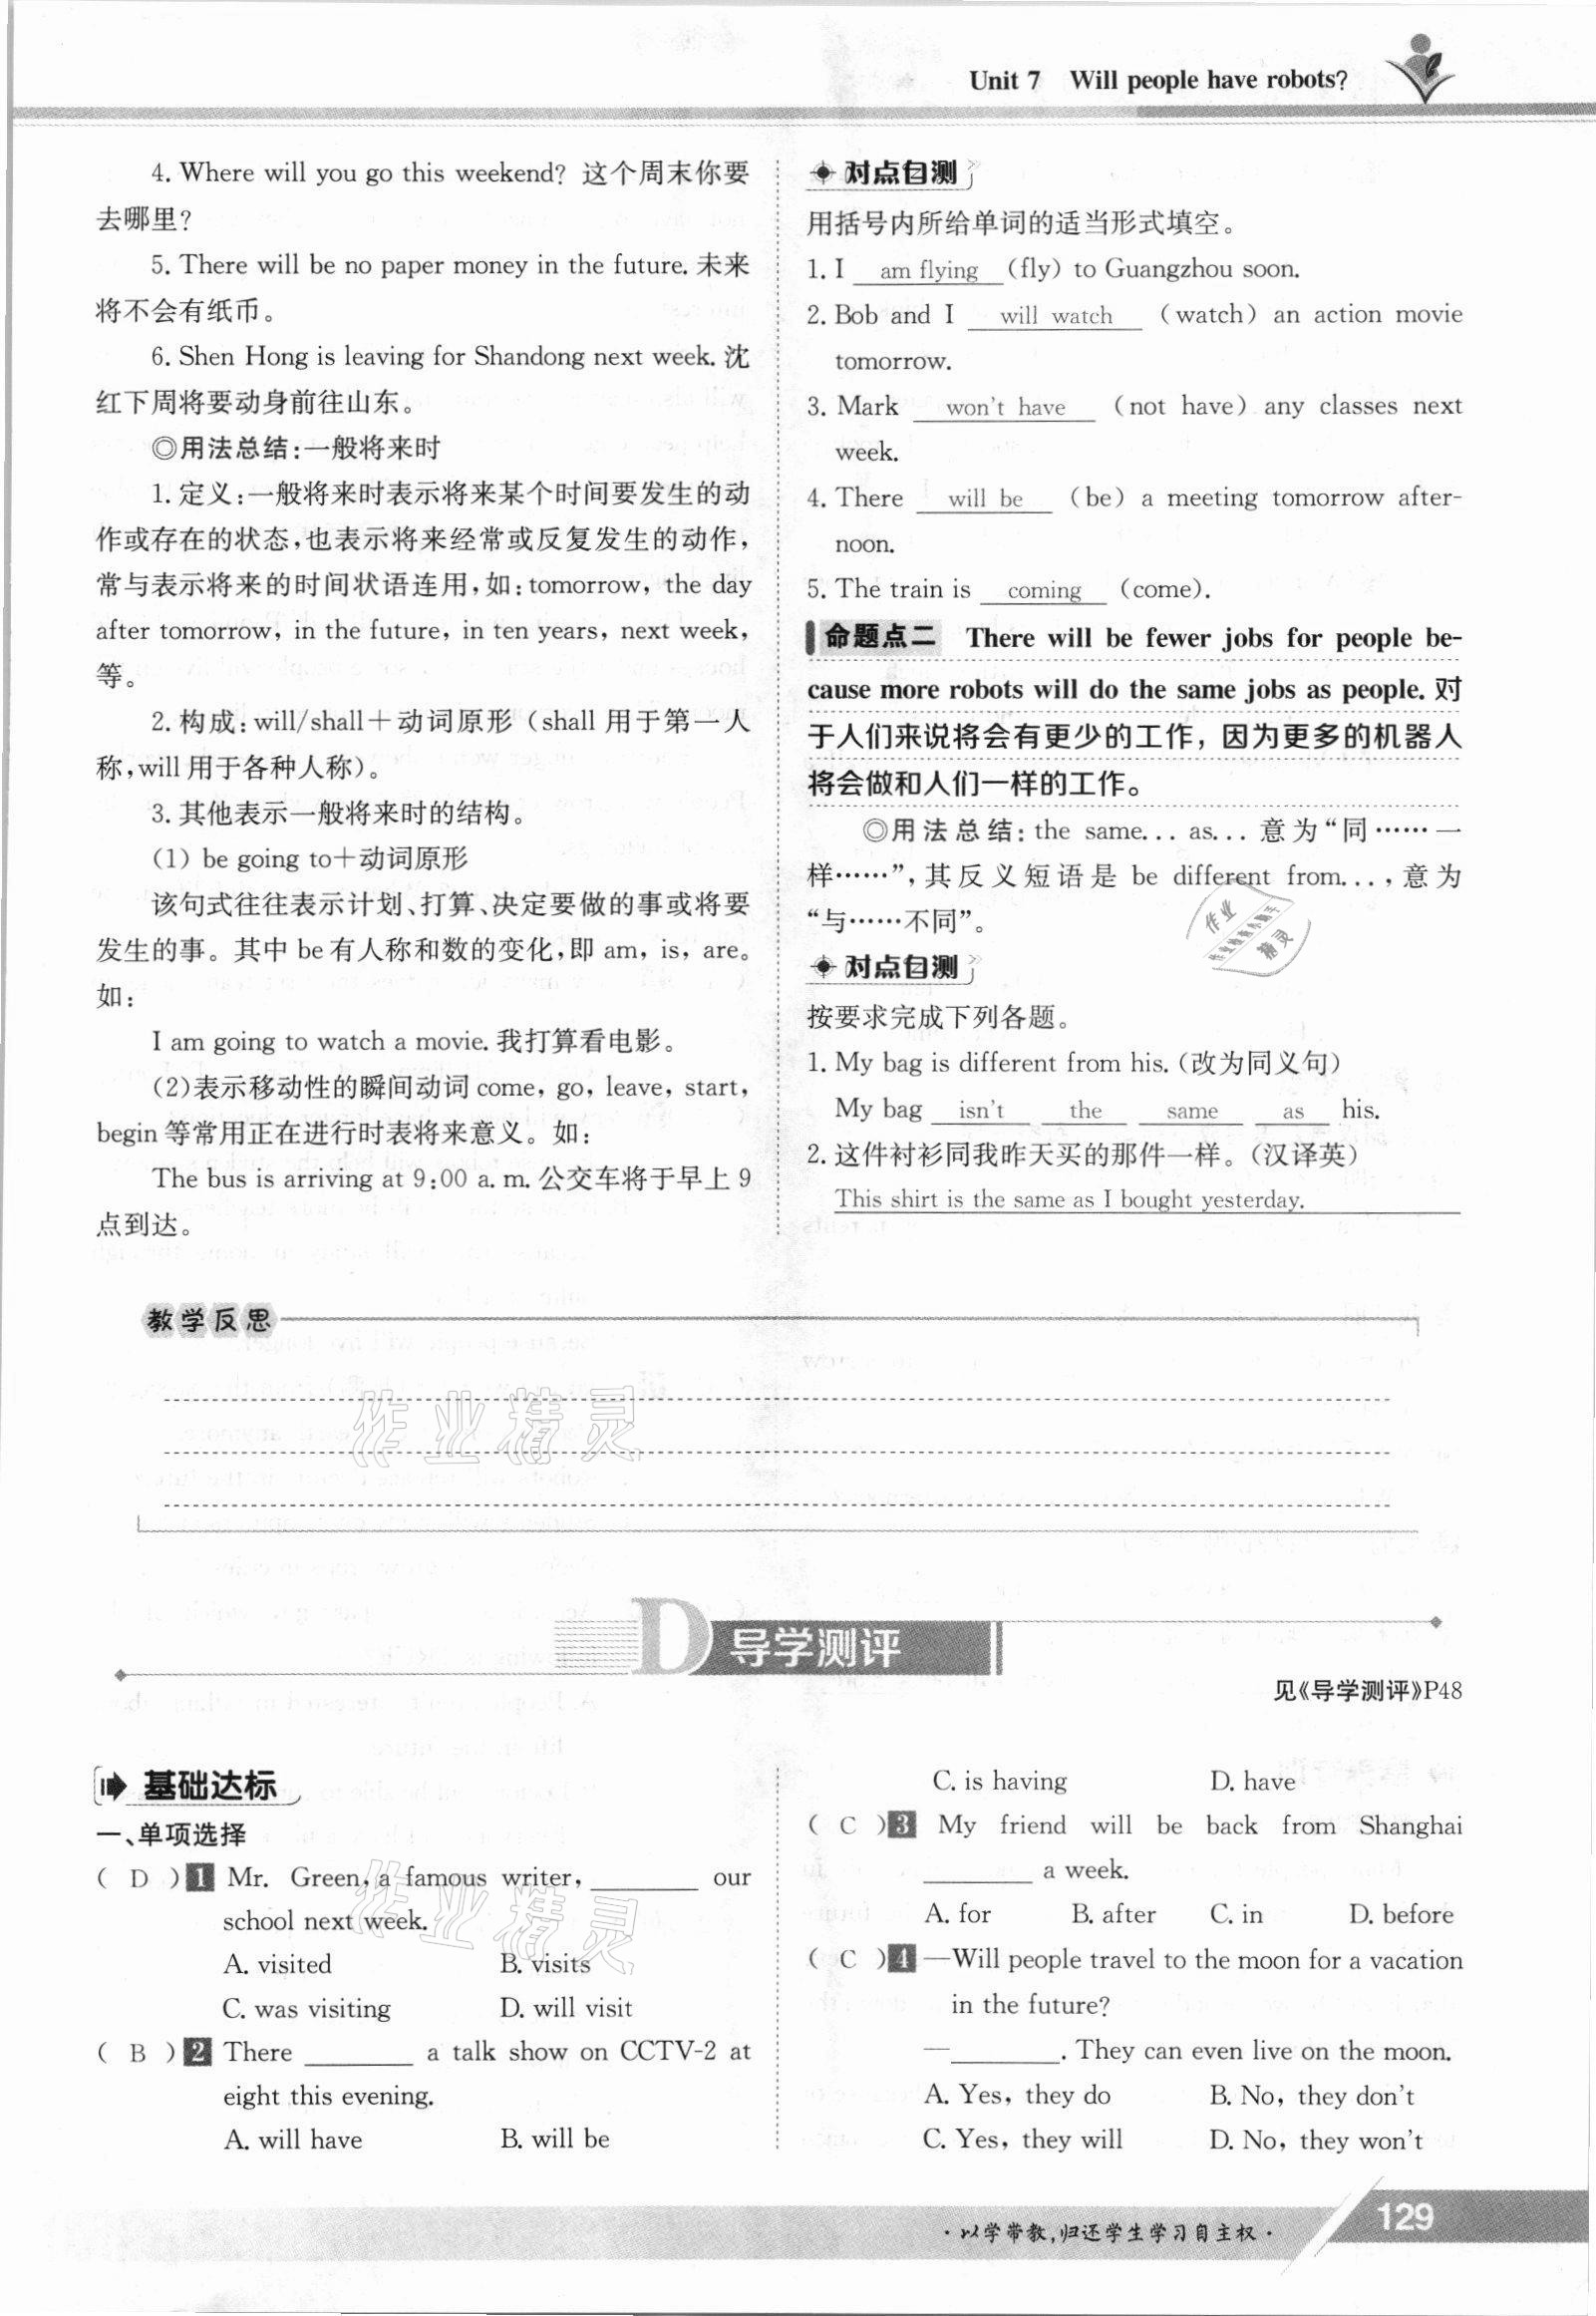 Unit 7 Will people have robots?
4. Where will you go this weekend? 这个周末你要
去哪里?
5. There will be no paper money in the future. 未来
将不会有纸币。
6. Shen Hong is leaving for Shandong next week. 沈
红下周将要动身前往山东。
◎用法总结:一般将来时
1. 定义:一般将来时表示将来某个时间要发生的动
作或存在的状态,也表示将来经常或反复发生的动作,
常与表示将来的时间状语连用,如: tomorrow, the day
after tomorrow, in the future, in ten years, next week,
等。
2. 构成: will/shall+动词原形 (shall 用于第一人
称, will 用于各种人称)。
3. 其他表示一般将来时的结构。
(1) be going to+动词原形
该句式往往表示计划、打算、决定要做的事或将要
发生的事。其中 be 有人称和数的变化,即 am, is, are。
如:
I am going to watch a movie. 我打算看电影。
(2)表示移动性的瞬间动词 come, go, leave, start,
begin 等常用正在进行时表将来意义。如:
The bus is arriving at 9:00 a. m. 公交车将于早上 9
点到达。
对点自测
用括号内所给单词的适当形式填空。
1. I am flying (fly) to Guangzhou soon.
2. Bob and I will watch (watch) an action movie
tomorrow.
3. Mark won't have (not have) any classes next
week.
4. There will be (be) a meeting tomorrow after-
noon.
5. The train is coming (come).
命题点二 There will be fewer jobs for people be-
cause more robots will do the same jobs as people. 对
于人们来说将会有更少的工作, 因为更多的机器人
将会做和人们一样的工作。
◎用法总结: the same... as... 意为“同……一
样……”, 其反义短语是 be different from..., 意为
“与……不同”。
对点自测
按要求完成下列各题。
1. My bag is different from his. (改为同义句)
My bag isn't the same as his.
2. 这件衬衫同我昨天买的那件一样。(汉译英)
This shirt is the same as I bought yesterday.
作业
精灵
教学反思
作业精灵
D 导学测评
见《导学测评》P48
基础达标
一、单项选择
( D ) 1 Mr. Green, a famous writer, ________ our
school next week.
A. visited B. visits
C. was visiting D. will visit
作业精灵
( B ) 2 There ________ a talk show on CCTV-2 at
eight this evening.
A. will have B. will be
C. is having D. have
( C ) 3 My friend will be back from Shanghai
________ a week.
A. for B. after C. in D. before
( C ) 4 —Will people travel to the moon for a vacation
in the future?
—________. They can even live on the moon.
A. Yes, they do B. No, they don't
C. Yes, they will D. No, they won't
·以学带教,归还学生学习自主权·
129